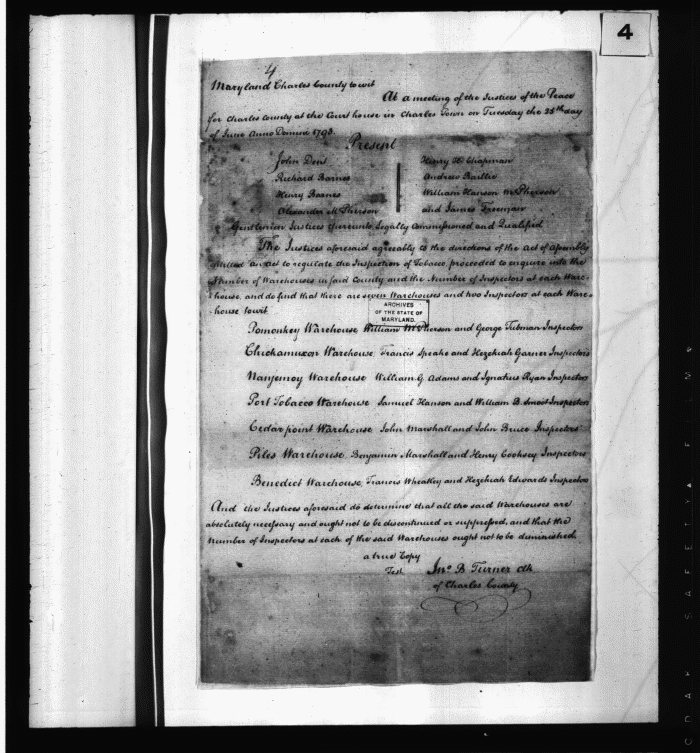 4
4
Maryland Charles County to wit
At a meeting of the Justices of the Peace
for Charles County at the Court house in Charles Town on Tuesday the 25th day
of June Anno Domini 1793.
Present
John Dent
Richard Barnes
Henry Barnes
Alexander McPherson
Henry H. Chapman
Andrew Baillie
William Hanson McPherson
and James Freeman
Gentlemen Justices thereunto Legally Commissioned and Qualified
The Justices aforesaid agreably to the directions of the Act of Assembly
entitled "An act to regulate the Inspection of Tobacco, proceeded to enquire into the
Number of Warehouses in said County and the Number of Inspectors at each Ware-
house, and do find that there are seven Warehouses and two Inspectors at each Ware-
house to wit
ARCHIVES
OF THE STATE OF
MARYLAND.
Pomonkey Warehouse, William McPherson and George Tubman Inspectors
Chickamuxon Warehouse, Francis Speake and Hezekiah Garner Inspectors
Nanjemoy Warehouse William G Adams and Ignatius Ryan Inspectors
Port Tobacco Warehouse Samuel Hanson and William B. Smoot Inspectors
Cedar point Warehouse, John Marshall and John Bruce Inspectors
Piles Warehouse, Benjamin Marshall and Henry Cooksey Inspectors
Benedict Warehouse, Francis Wheatley and Hezekiah Edwards Inspectors
And the Justices aforesaid do determine that all the said Warehouses are
absolutely necessary and ought not to be discontinued or suppressed, and that the
Number of Inspectors at each of the said Warehouses ought not to be diminished.
a true Copy
Test Jno B Turner Clk
of Charles County